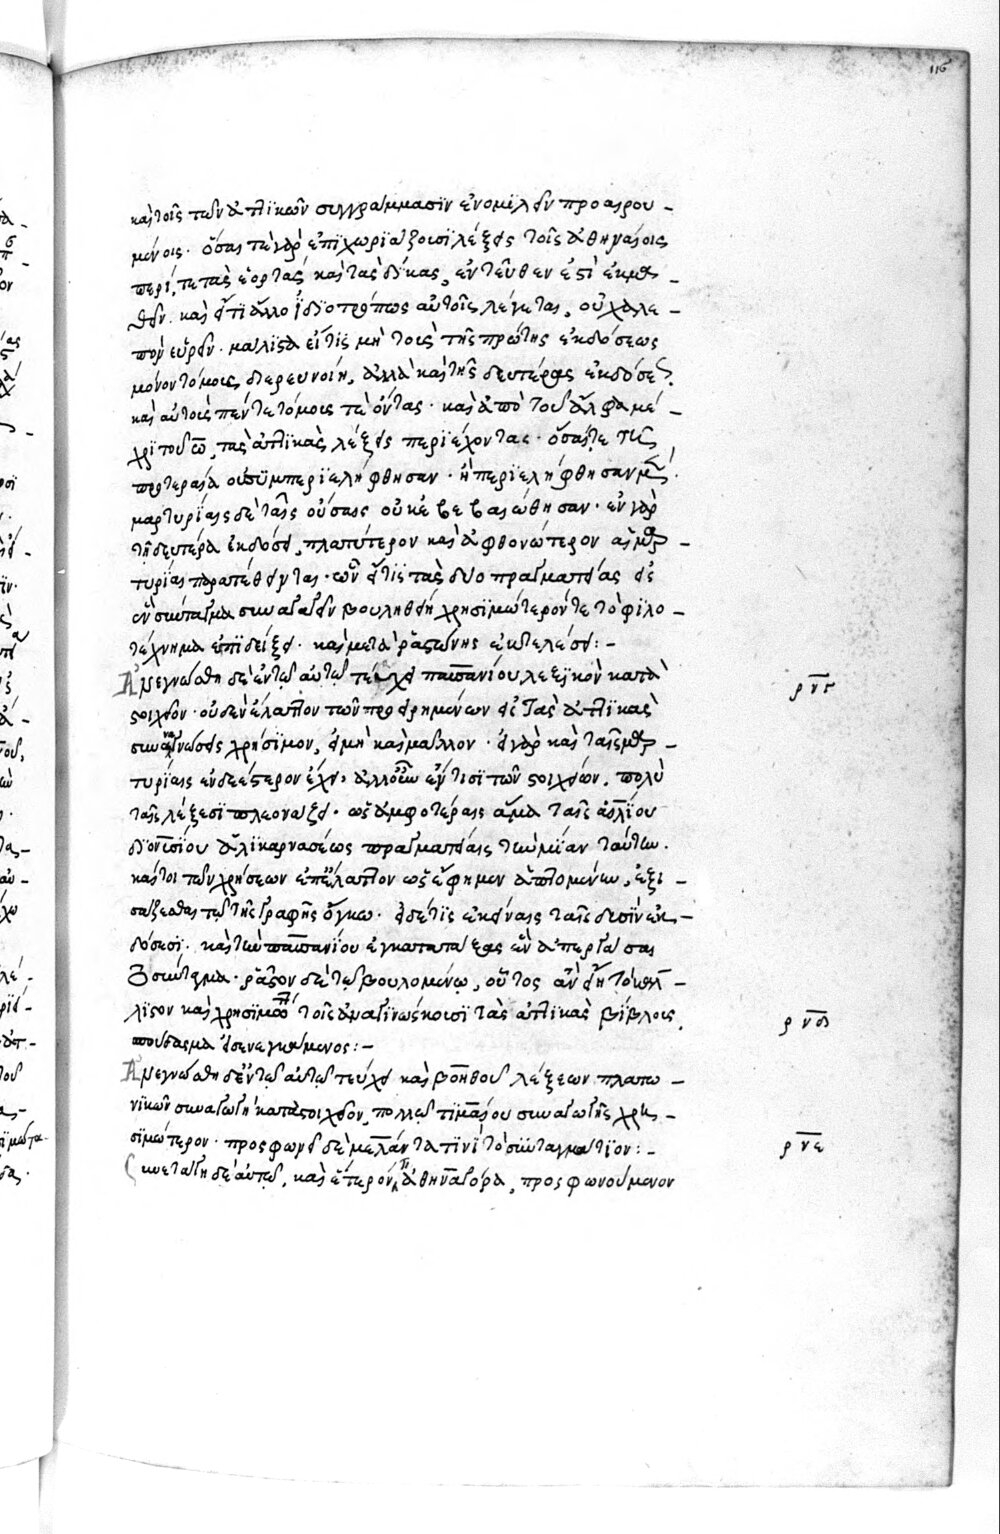 116
καὶ τοῖς τῶν ἀττικῶν συγγράμμασϊν ἐνομιλεῖν προαιρου –
μένοις. ὅσα τε γὰρ ἐπϊχωρϊάζουσι λέξεις τοῖς ἀθηναίοις
περί τε τὰς ἑορτὰς καὶ τὰς δίκας, ἐντεῦθεν ἐστὶ ἐκμα –
θεῖν. καὶ εἴ τι ἄλλο ἰδϊοτρόπως αὐτοῖς λέγεται, οὐ χαλε –
πὸν εὑρεῖν. μάλιστα εἴ τις μὴ τοὺς τῆς πρώτης ἐκδόσεως
μόνον τόμους διερευνοίη, ἀλλὰ καὶ τῆς δευτέρας ἐκδόσεως
καὶ αὐτοὺς πέντε τόμους τε ὄντας. καὶ ἀπὸ τοῦ ἄλφα μέ –
χρι τοῦ ω, τὰς ἀττϊκὰς λέξεις περϊέχοντας. ὅσαι τε τῆς
προτέρας οὐ συμπερϊελήφθησαν. ἢ περϊελήφθησαν μὲν
μαρτυρίαις δὲ ταῖς οὔσαις οὐκ ἐβεβαιώθησαν. ἐν γὰρ
τῇ δευτέρα ἐκδόσει, πλατύτερον καὶ ἀφθονώτερον αἱ μαρ –
τυρίαι παρατέθεινται. ὧν εἴ τις τὰς δύο πραγματείας εἰς
ἓν σύνταγμα συναγαγεῖν βουληθείη χρησϊμώτερόν τε τὸ φϊλο –
τέχνημα ἐπϊδείξει. καὶ μετὰ ῥᾳστώνης ἐκτελέσει: –
Ἀνεγνώσθη δὲ ἐν τῷ αὐτῷ τεύχει παυσανίου λεξϊκὸν κατὰ
στοιχεῖον. οὐδὲν ἔλαττον τῶν προειρημένων εἰς τὰς ἀττϊκὰς
συναναγνώσεις χρήσϊμον, εἰ μὴ καὶ μᾶλλον. εἰ γὰρ καὶ ταῖς μαρ –
τυρίαις ἐνδεέστερον ἔχει, ἀλλ' οὖν ἔν τισϊ τῶν στοιχείων, πολὺ
ταῖς λέξεσϊ πλεονάζει. ὡς ἀμφοτέραις ἅμα ταῖς αἰλίου
δϊονυσίου ἁλϊκαρνασέως πραγματείαις τὴν μίαν ταύτην.
καίτοι τῶν χρήσεων ἐπ' ἔλαττον ὡς ἔφημεν ἁπτομένην, ἐξι –
σάζεσθαι τῷ τῆς γραφῆς ὄγκω. εἰ δέ τις ἐκείναις ταῖς δυσὶν ἐκ –
δόσεσϊ. καὶ τὴν παυσανίου ἐγκατατάξας ἓν ἀπεργάσαι
το σύνταγμα. ῥᾷστον δὲ τῷ βουλομένῳ, οὗτος ἂν εἴη τὸ κάλ –
λϊστον καὶ χρησϊμώτατον τοῖς ἀναγϊνώσκουσϊ τὰς ἀττϊκὰς βίβλους
σπούδασμα εἰσενεγκάμενος: –
Ἀνεγνώσθη δ' ἐν τῷ αὐτῷ τεύχει καὶ βοηθοῦ λέξεων πλατω –
νϊκῶν συναγωγὴ κατὰ στοιχεῖον, πολλῷ τϊμαίου συναγωγῆς χρη –
σϊμώτερον. προσφωνεῖ δὲ μελάντα τϊνὶ τὸ συνταγμάτϊον: –
Συνετάγη δὲ αὐτῷ, καὶ ἕτερόν τι ἀθηναγόρα, προσφωνούμενον
ρνγ
ρνδ
ρνε